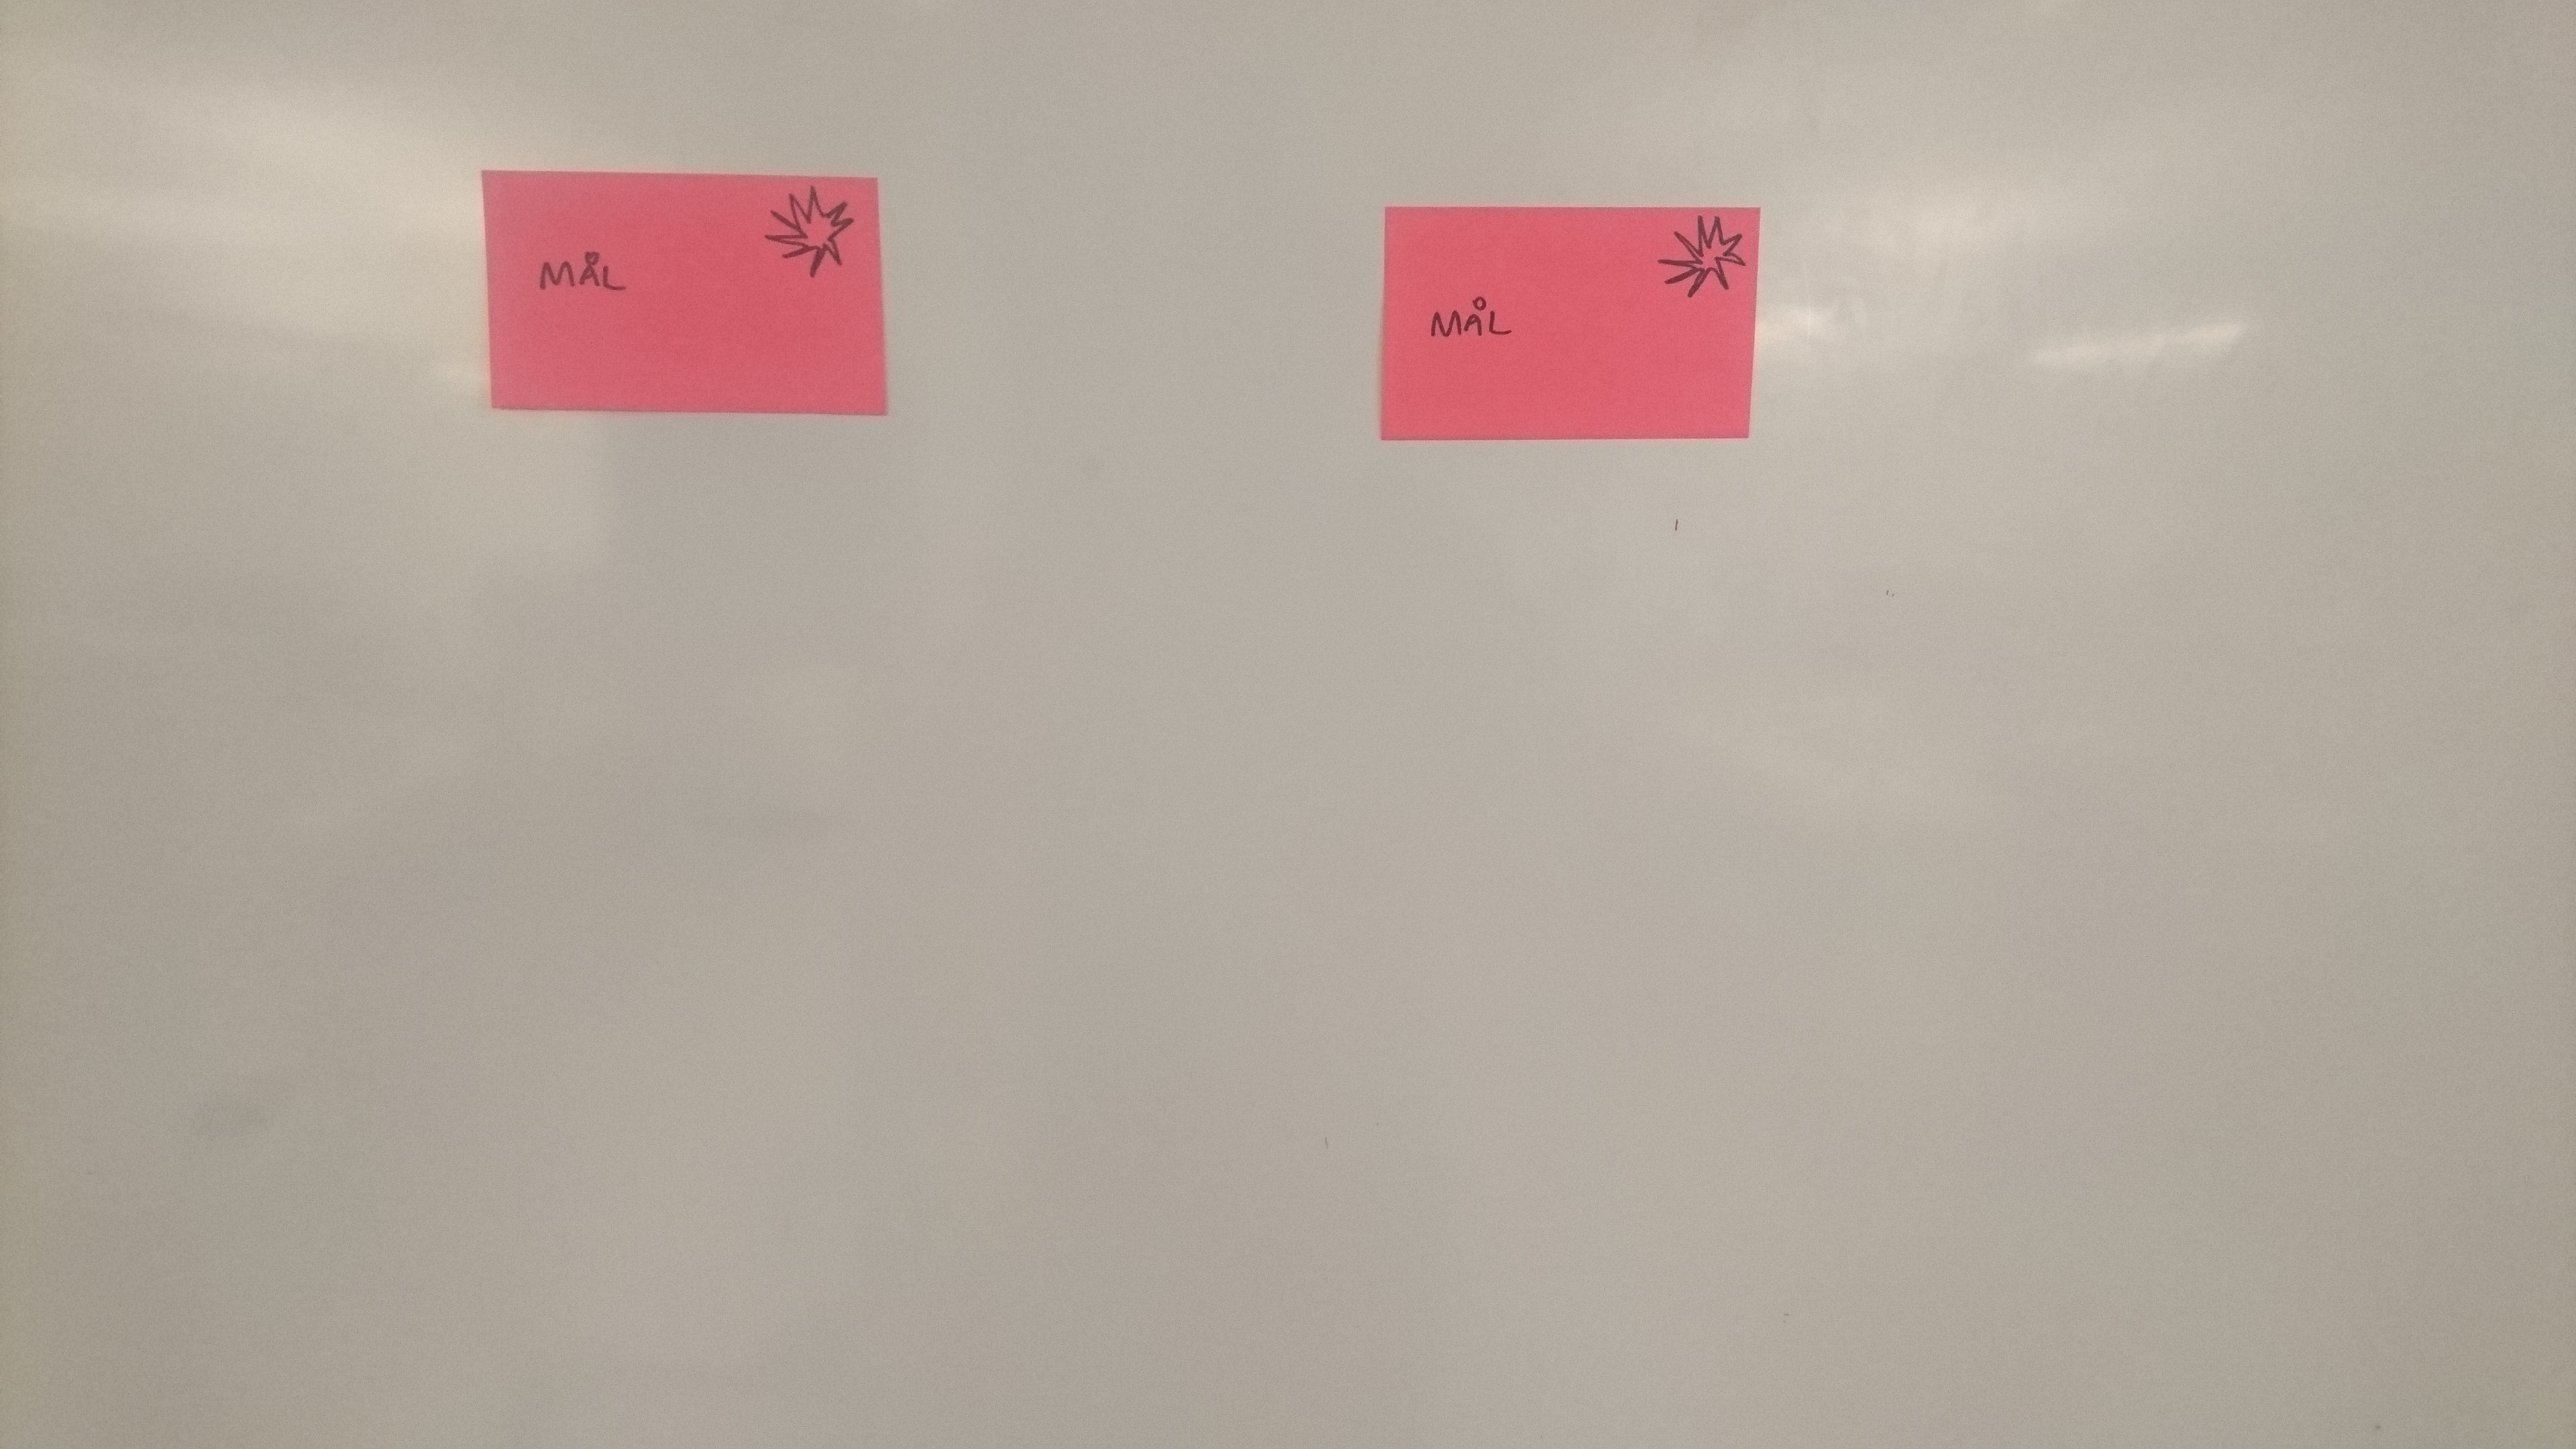 MÅL
MÅL